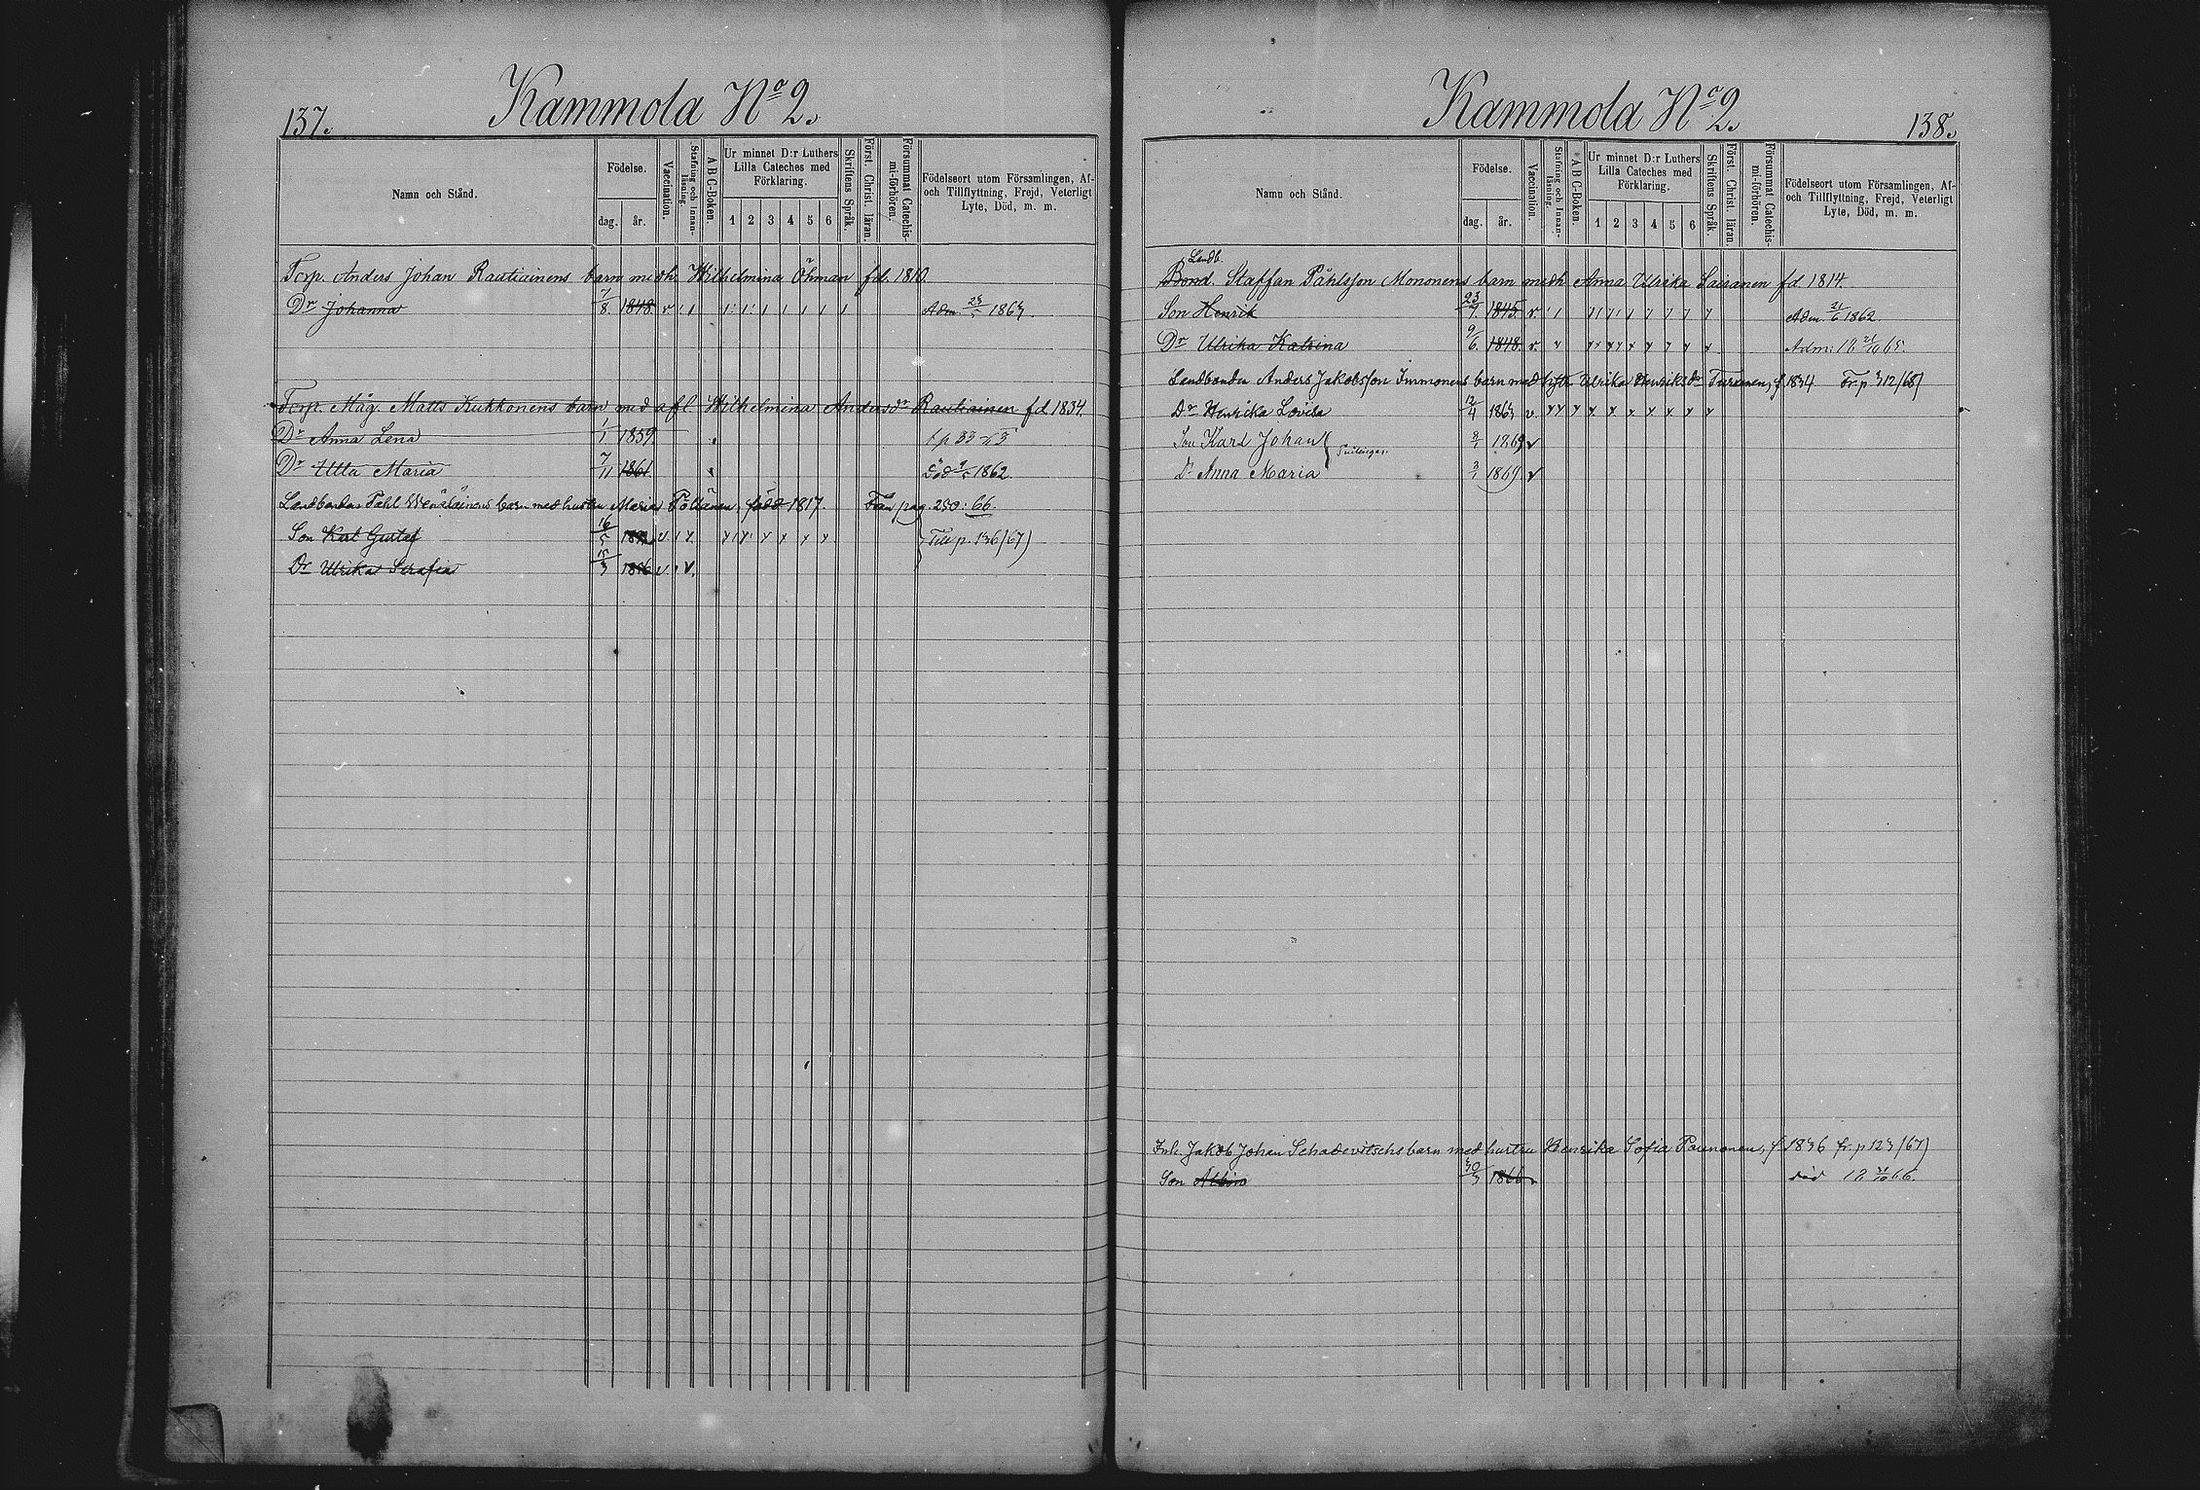 137.
Kammola No 2.
Namn och Stånd.
Födelse.
dag. år.
Vaccination.
Stafning och Innanläsning.
A B C-Boken.
Ur minnet D:r Luthers Lilla Cateches med Förklaring.
1 2 3 4 5 6
Skriftens Språk.
Först. Christ. läran.
Försummat Catechismi-förhören.
Födelseort utom Församlingen, Af- och Tillflyttning, Frejd, Veterligt Lyte, Död, m. m.
Torp. Anders Johan Rautiainens barn med h. Wilhelmina Öhman fd. 1810.
Dr Johanna 7/8 1848. v
Torp. Måg. Matts Kukkonens barn med afl. Wilhelmina Andersdr Rautiainen fd 1834.
Dr Anna Lena 1/1 1859
Dr Ulla Maria 7/11 1861 1862.
Landbonden Pahl Wenäläinens barn med hustru Maria Pöllänen, född 1817. Från pag. 250: 66.
Son Karl Gustaf 16/5 v Till p. 136/67)
Dr Ulrika Serafia 15/3 1856 v v.
138.
Kammola No 2.
Namn och Stånd.
Födelse.
dag. år.
Vaccination.
Stafning och Innanläsning.
A B C-Boken.
Ur minnet D:r Luthers Lilla Cateches med Förklaring.
1 2 3 4 5 6
Skriftens Språk.
Först. Christ. läran.
Försummat Catechismi-förhören.
Födelseort utom Församlingen, Af- och Tillflyttning, Frejd, Veterligt Lyte, Död, m. m.
Landb.
Bond. Staffan Påhlsson Mononens barn med h Anna Ulrika Sairanen fd 1814.
Son Henrik 23/7 1845. v Adm. 21/6 1862.
Dr Ulrika Katrina 9/6. 1848. v Adm: 18 21/10 65.
Landbonden Anders Jakobsson Immonens barn med hustr Ulrika Henriksdr Turunen, f. 1834 Fr. p 312/68)
Dr Henrika Lovisa 12/4 1863 v.
Son Karl Johan 1869 v
Dr Anna Maria 3/1 1869 v
Inh. Jakob Johan Schadevitschs barn med hustru Henrika Sofia Paunonen, f. 1836 fr. p 123/67)
Son Albin 30/3 1866. död 18 31/10 66.